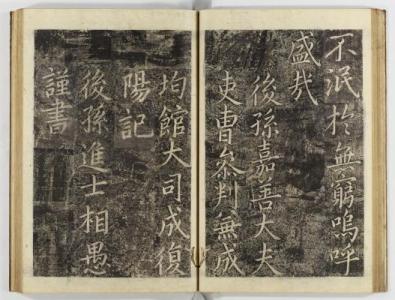 不泯於無窮嗚呼
盛哉
後孫嘉善大夫
吏曹叅判兼成
均館大司成復
陽記
後孫進士相愚
謹書